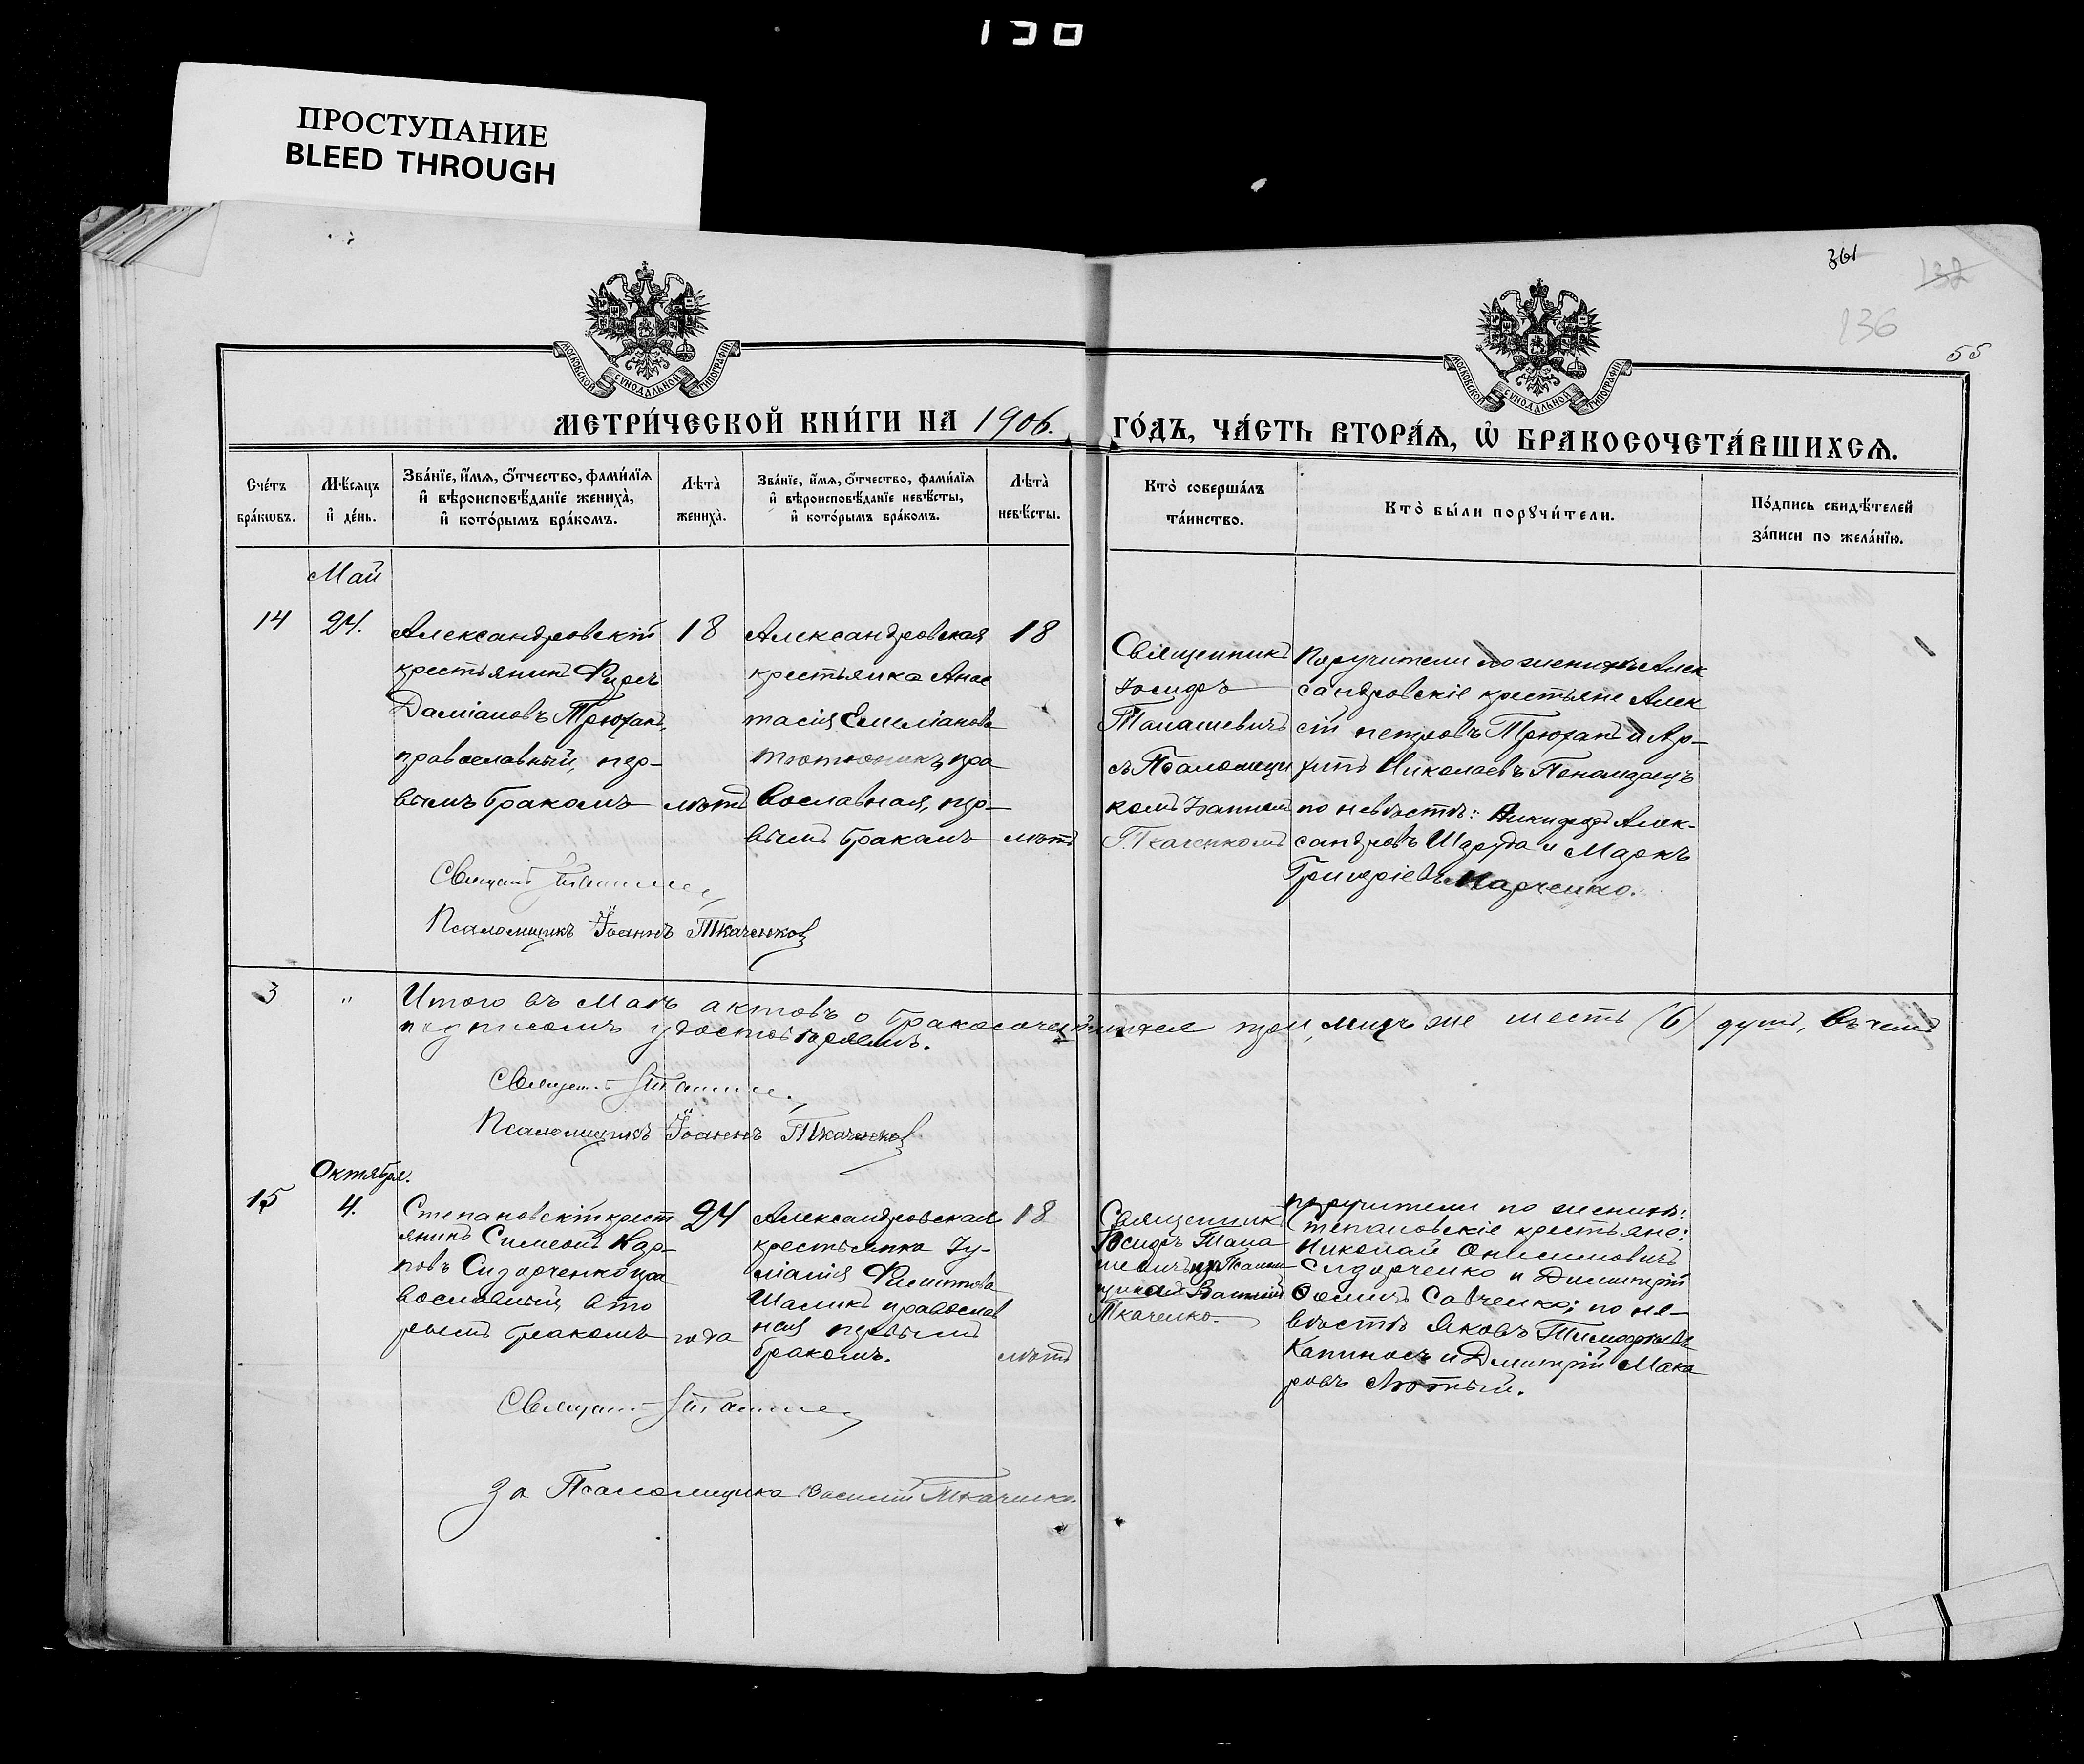 130
ПРОСТУПАНИЕ
BLEED THROUGH
361
132
136
55
МОСКОВСКОЙ СѴНОДАЛЬНОЙ ТИПОГРАФІИ
МОСКОВСКОЙ СѴНОДАЛЬНОЙ ТИПОГРАФІИ
МЕТРИ́ЧЕСКОЙ КНИ́ГИ НА 1906. ГО́ДЪ, ЧА́СТЬ ВТОРА́Ѧ, Ѡ҆ БРАКОСОЧЕТА́ВШИХСѦ.
Сче́тъ
бра́кѡвъ.
Мѣ́сѧцъ
и҆ де́нь.
Зва́нїе, и҆́мѧ, ѻ҆́тчество, фами́лїѧ
и҆ вѣроисповѣ́данїе жениха̀,
и҆ кото́рымъ бра́комъ.
Лѣта̀
жениха̀.
Зва́нїе, и҆́мѧ, ѻ҆́тчество, фами́лїѧ
и҆ вѣроисповѣ́данїе невѣ́сты,
и҆ кото́рымъ бра́комъ.
Лѣта̀
невѣ́сты.
Кто̀ соверша́лъ
та́инство.
Кто̀ бы́ли порꙋчи́тели.
По́дпись свидѣ́телей
за́писи по жела́нїю.
Май
14
24.
Александровскій
крестьянинъ Фирсъ
Даміановъ Трюханъ,
православный, пер-
вымъ бракомъ
18
лѣтъ
Александровская
крестьянка Анас
тасія Емеліанова
Тютюникъ, пра
вославная, пер-
вымъ бракомъ
18
лѣтъ
Священникъ
Іосифъ
Танашевичъ
съ Псаломщи
комъ Іоанномъ
Ткаченкомъ
Поручители по женихѣ Алек
сандровскіе крестьяне Алек
сій Петровъ Трюханъ и
Николаевъ Пономарецъ
по невѣстѣ: Никифоръ Алек-
сандровъ Шаруда и Маркъ
Григоріевъ Марченко.
Псаломщикъ Іоаннъ Ткаченков
3
"
Итого въ Маѣ актовъ о бракосочетавшихся три, лицъ же шесть (6) душъ, въ чемъ
подписомъ удостовѣряемъ.
Псаломщикъ Іоаннъ Ткаченков
Октября.
15
4.
Степановскій крест
янинъ Симеонъ Кар-
повъ Сидорченко пра
вославный, вто
рымъ бракомъ
24
года
Александровская
крестьянка Іу-
ліанія Филиппова
Шаликъ православ
ная первымъ
бракомъ.
18
лѣтъ
Священникъ
Іосифъ Тана
шевичъ
Василій
Ткаченко.
поручители по женихѣ:
Степановскіе крестьяне:
Николай Онисимовичъ
Сидорченко и Димитрій
Ѳоминъ Савченко; по не-
вѣстѣ Яковъ Тимофѣевъ
Капиносъ и Дмитрій Мака
ровъ Лютый.
За Псаломщика Василій Ткаченко.